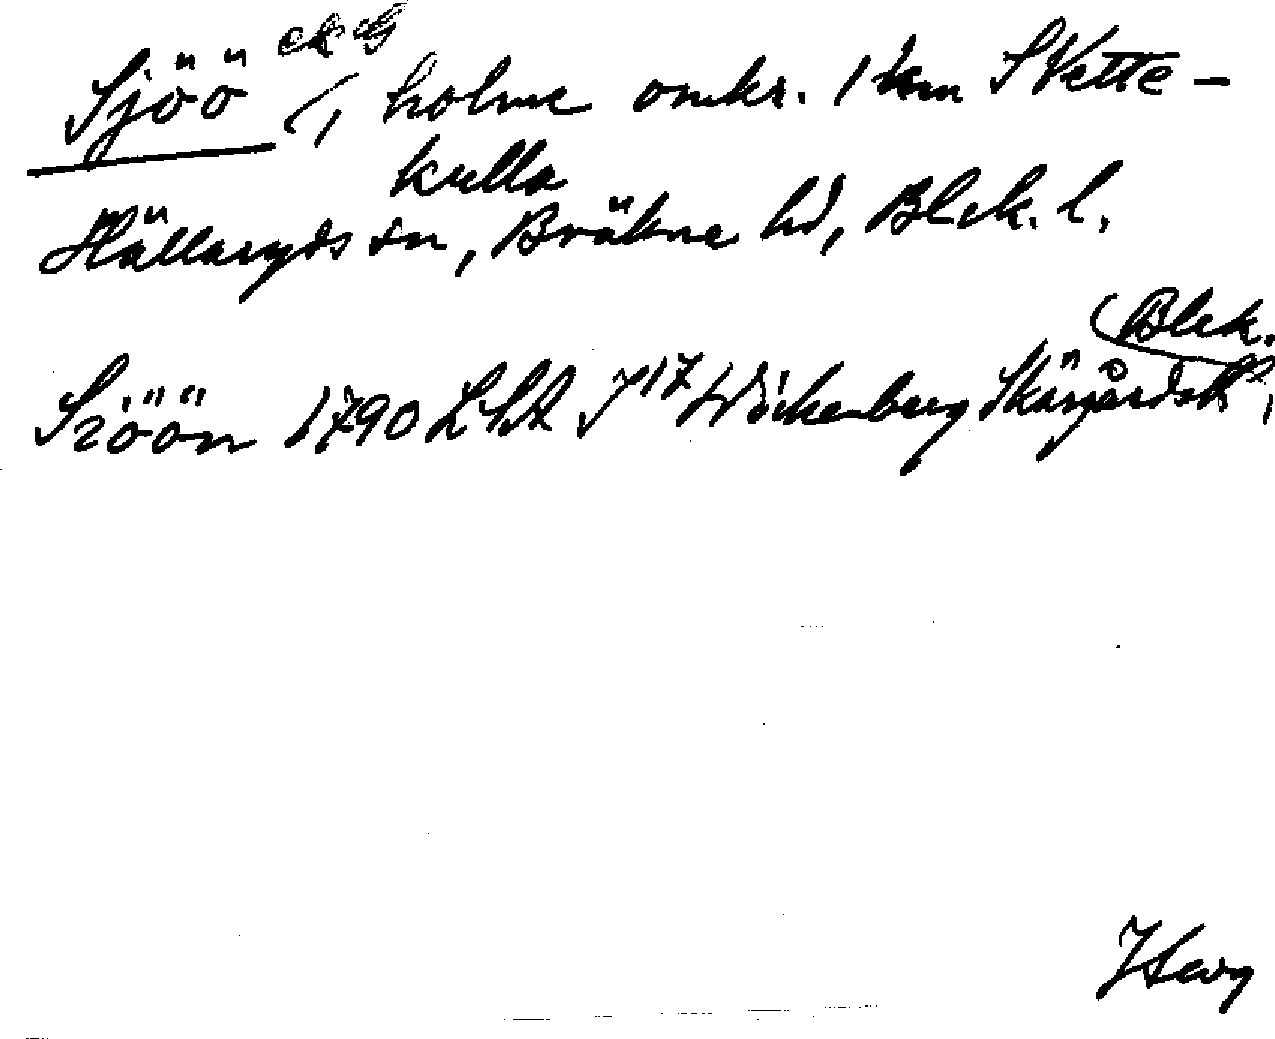 Sjöö ekG, holme omkr. 1 km S Vette-
kulla
Hällaryds sn, Bräkne hd, Blek. l.
(Blek.
Siöön 1790 LSA J17 Wickenberg Skärgårdsk,